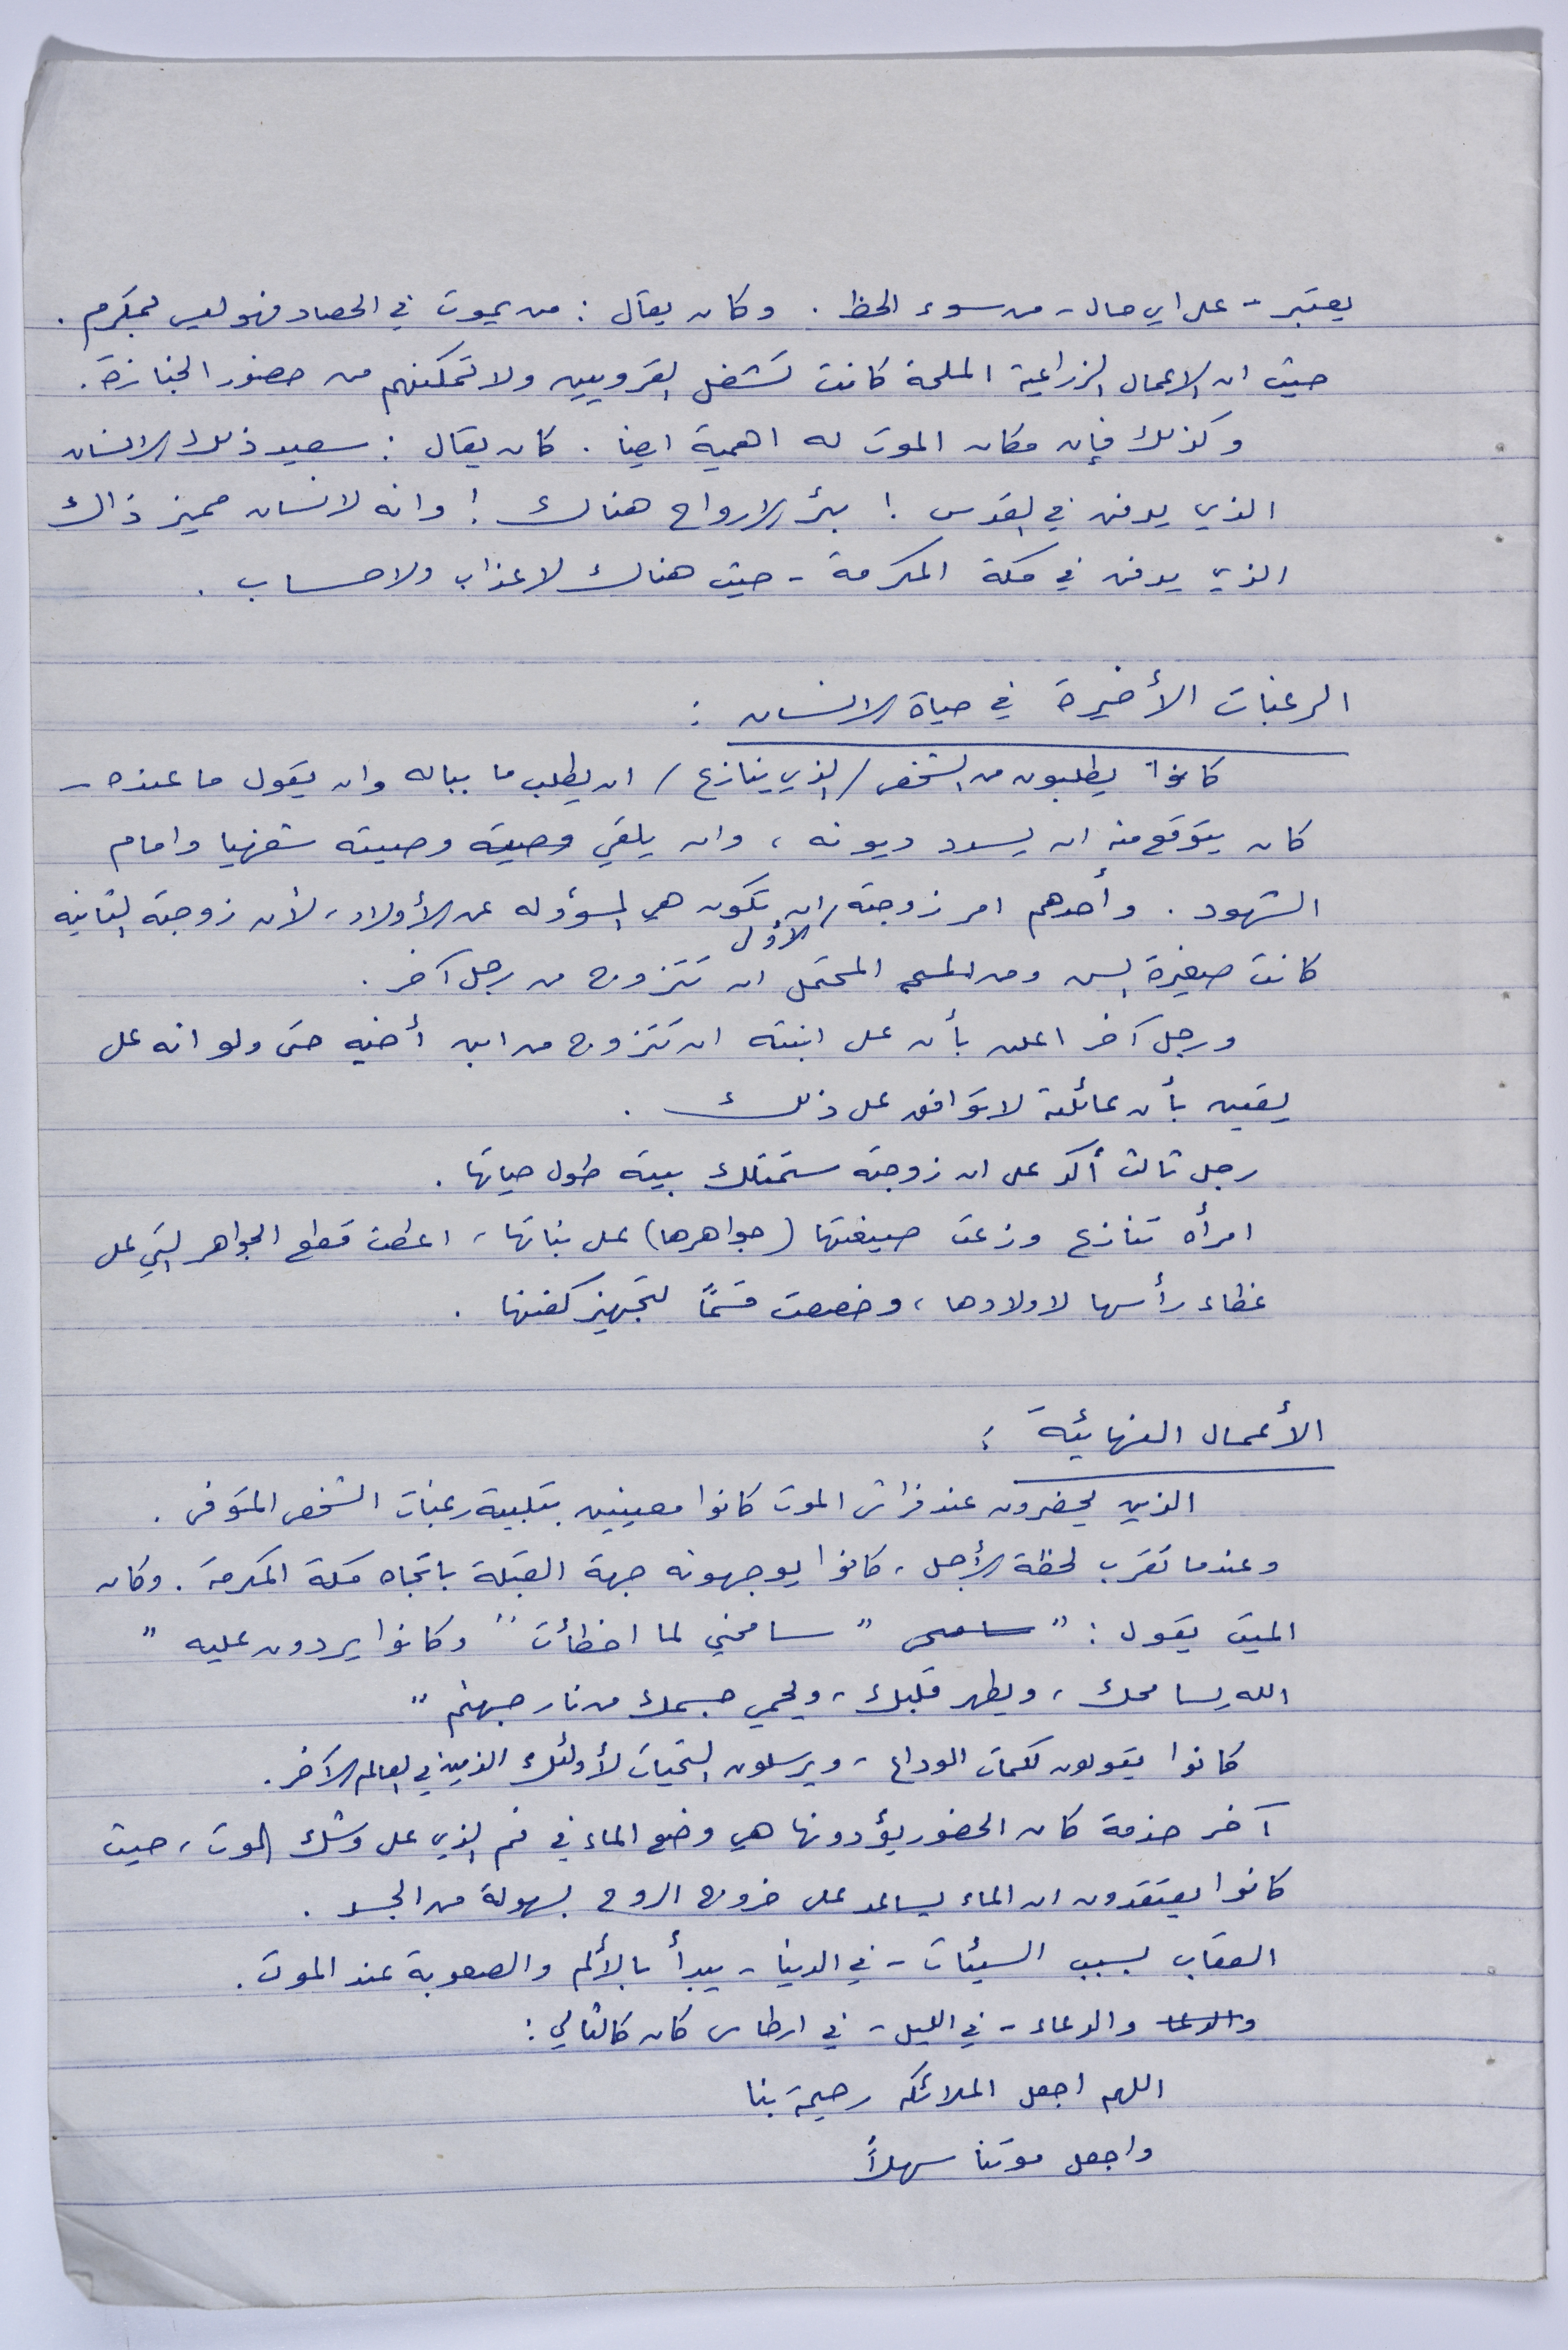 يعتبر - على اي حال - من سوء الحظ . وكان يقال : من يموت في الحصاد فهو ليس بمكرم .
حيث ان الاعمال الزراعية الملحة كانت تشغل القرويين ولا تمكنهم من حضور الجنازة .
وكذلك فإن مكان الموت له اهمية ايضا . كان يقال : سعيد ذلك الانسان
الذي يدفن في القدس ! بئر الارواح هناك ! وانه لانسان مميز ذاك
الذي يدفن في مكة المكرمة - حيث هناك لا عذاب ولا حساب .
الرغبات الأخيرة في حياة الانسان :
كانوا يطلبون من الشخص / الذي ينازع / ان يطلب ما بباله وان يقول ما عنده -
كان يتوقع منه ان يسدد ديونه ، وان يلقي وصية وصيته شفهيا وامام
الشهود . وأحدهم امر زوجته الأولى ان تكون هي المسؤوله عن الأولاد ، لأن زوجته الثانيه
كانت صغيرة السن ومن المحتمل ان تتزوج من رجل آخر .
ورجل آخر اعلن بأن على ابنته ان تتزوج من ابن أخيه حتى ولو انه على
يقين بأن عائلته لا توافق على ذلك .
رجل ثالث أكد على ان زوجته ستمتلك بيته طول حياتها .
امرأه تنازع وزعت صيغتها (جواهرها) على بناتها ، اعطت قطع الجواهر التي على
غطاء رأسها لاولادها ، وخصصت قسمًا لتجهيز كفنها .
الأعمال النهائية :
الذين يحضرون عند فراش الموت كانوا معنيين بتلبية رغبات الشخص المتوفى .
وعندما تقرب لحظة الأجل ، كانوا يوجهونه جهة القبلة باتجاه مكة المكرمة . وكان
الميت يقول : " سامحني " سامحني لما اخطأت " وكانوا يردون عليه "
الله يسامحك ، ويطهر قلبك ، ويحمي جسمك من نار جهنم "
كانوا يقولون كلمات الوداع ، ويرسلون التحيات لأولئك الذين في العالم الآخر .
آخر خدمة كان الحضور يؤدونها هي وضع الماء في فم الذي على وشك الموت ، حيث
كانوا يعتقدون ان الماء يساعد على خروج الروح بسهولة من الجسد .
العقاب بسبب السيئات - في الدنيا - يبدأ بالألم والصعوبة عند الموت .
والدعا والدعاء - في الليل - في ارطاس كان كالتالي :
اللهم اجعل الملائكه رحيمة بنا
واجعل موتنا سهلاً